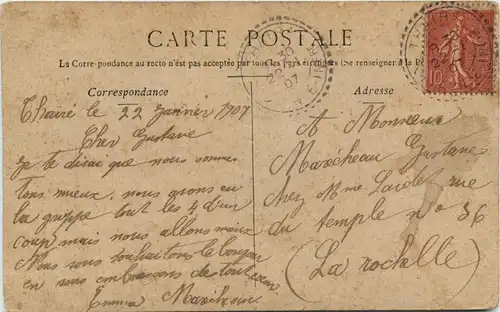 CARTE POSTALE
La Correspondance au recto n'est pas acceptée par tous les Pays étrangers (Se renseigner à la
Correspondance
Adresse
Thairé le 22 Janvier 1907
Cher Gustave
Je te dirai que nous sommes
tous mieux, nous avons eu
la grippe tout les 4 d'un
coup mais nous allons mieux
Nous vous souhaitons le bonjour
en vous embrassons de tout cœur
Emma Marécheau
A Monsieur
Marécheau Gustave
chez Mme rue
du temple n° 36
(La rochelle)
10
30
22
07